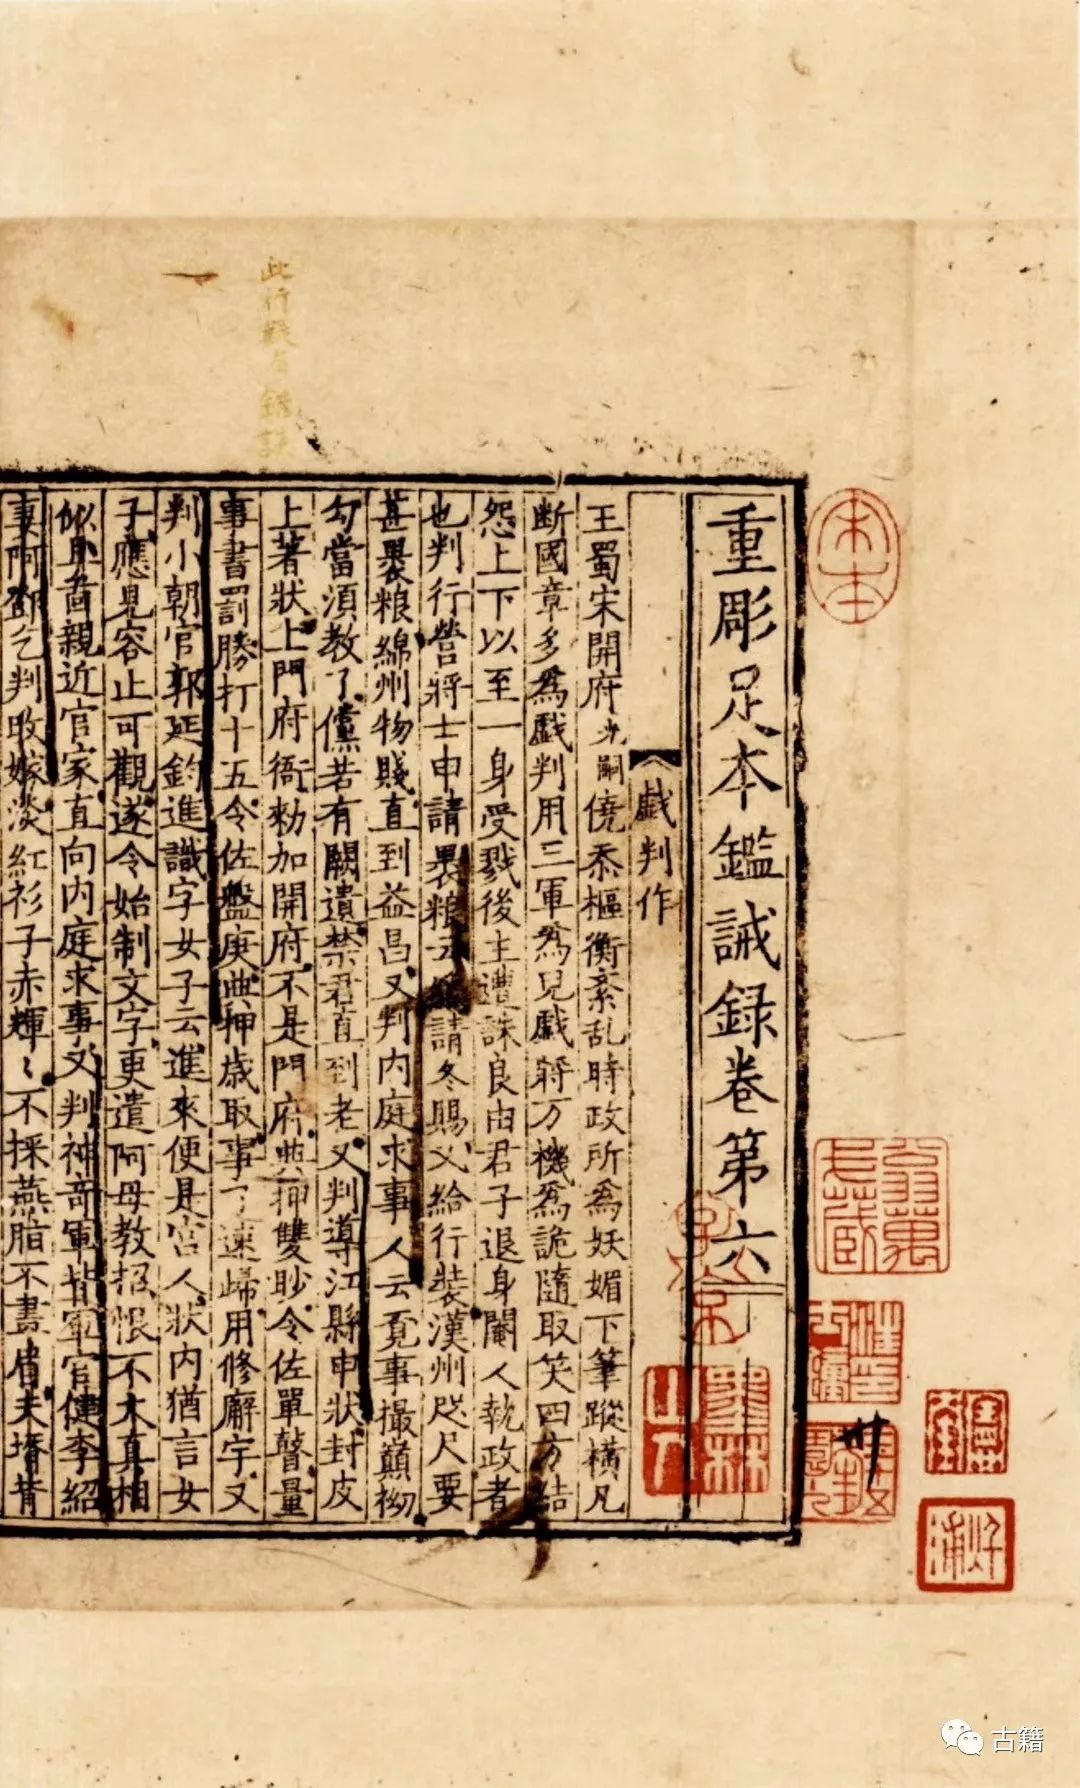 重彫足本鑑誡録卷第六
戯判作
王蜀宋開府光嗣僥忝樞衡紊乱時政所為妖媚下筆蹤橫凡
断國章多為戯判用三軍為兒戯將万機為詭隨取笑四方結
怨上下以至一身受戮後主遭誅良由君子退身閹人執政者
也判行營將士申請裹粮云 請冬賜又給行裝漢州咫尺要
甚裹粮綿州物賤直到益昌又判内庭求事人云覔事撮巔拗
勾當須教了儻若有闕遺禁君直到老又判導江縣申狀封皮
上著狀上門府衙勑加開府不是門府典押雙眇令佐單瞽量
事書罰勝打十五令佐盤庚典押歳取事了速歸用修廨宇又
判小朝官郭延鈞進識字女子云進來便是宫人狀内猶言女
子應見容止可觀遂令始制文字更遣阿母教招恨不太真相
似且圖親近官家直向内庭求事又判神奇軍背軍官健李紹
妻阿鄧乞判改嫁淡紅衫子赤輝〻不採燕脂不畫眉夫壻背
本
古籍